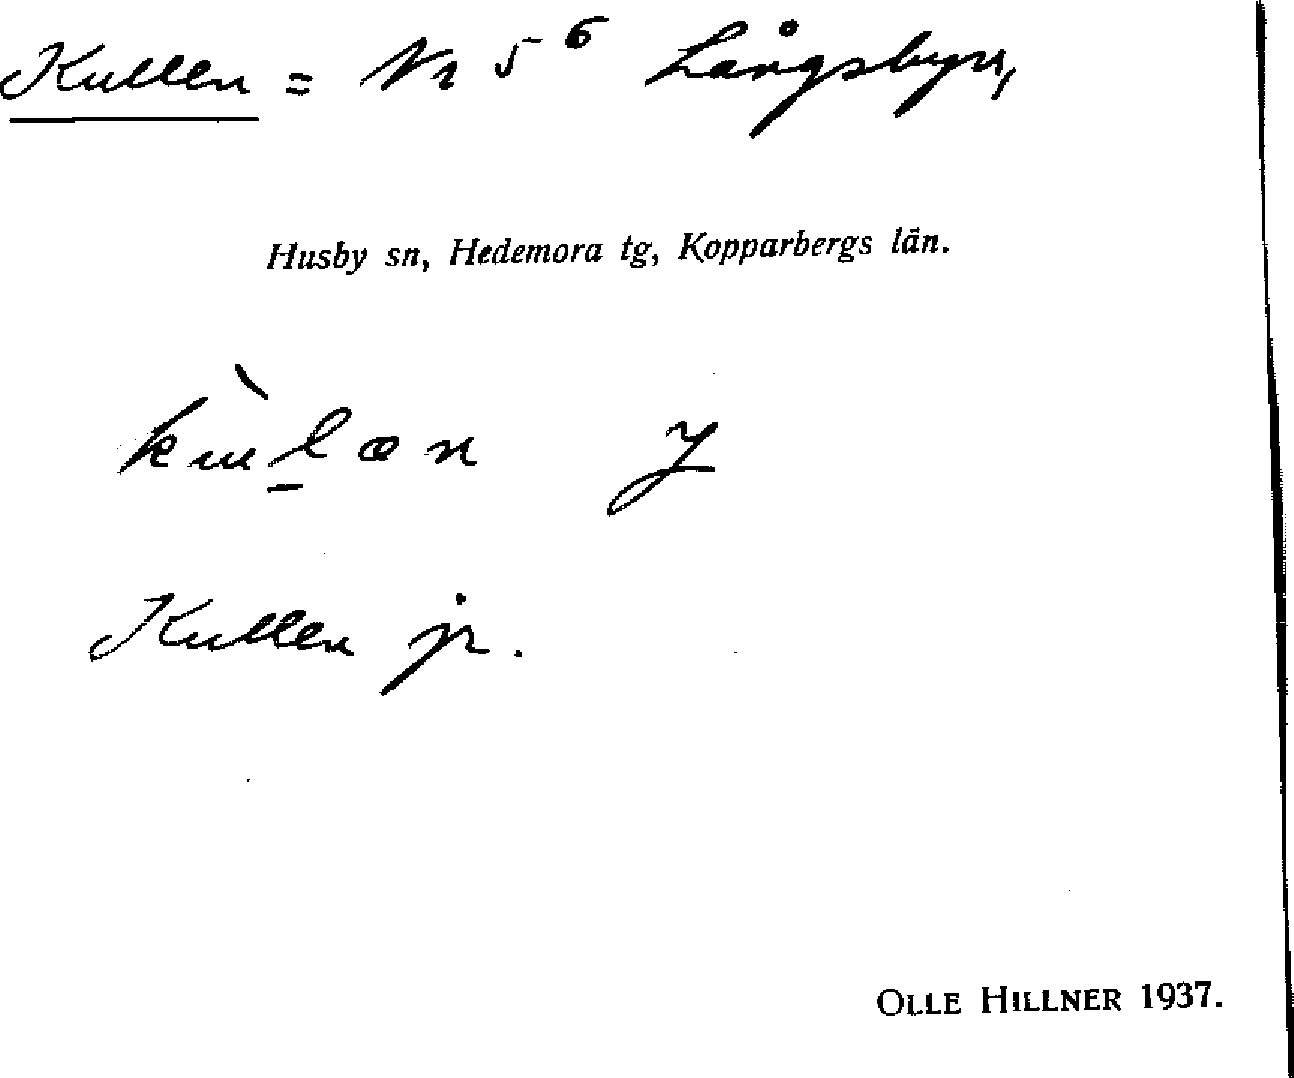 Kullen = Nr 5⁶ Långsbyn,
Husby sn, Hedemora tg, Kopparbergs län.
Kullen jr.
OLLE HILLNER 1937.